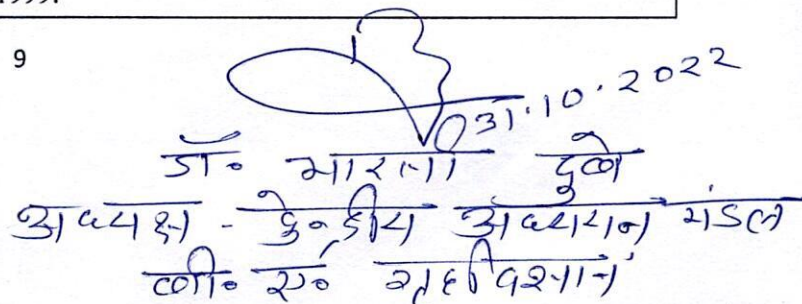 1999.
9
31.10.2022
डॉ. भारती दुबे
अध्यक्ष - केन्द्रीय अध्ययन मंडल
बी. ए. गृहविज्ञान